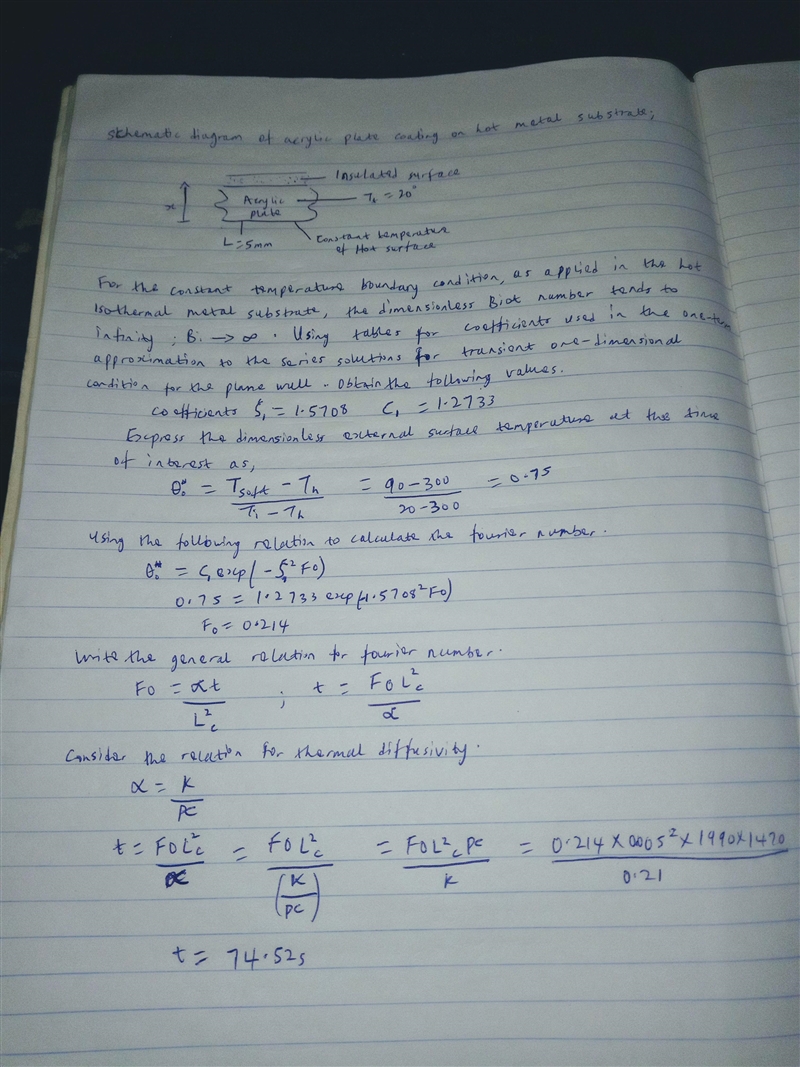 schematic diagram of acrylic plate coating on hot metal substrate;
Insulated surface
x
Acrylic plate
Th = 20°
L = 5mm
Constant temperature of Hot surface
For the constant temperature boundary condition, as applied in the hot
Isothermal metal substrate, the dimensionless Biot number tends to
infinity ; Bi → ∞ . Using tables for coefficients used in the one-term
approximation to the series solutions for transient one-dimensional
condition for the plane wall . Obtain the following values.
coefficients ξ₁ = 1.5708 C₁ = 1.2733
Express the dimensionless external surface temperature at the time
of interest as,
θ₀* = (Tsoft - Th)/(Ti - Th) = (90-300)/(20-300) = 0.75
Using the following relation to calculate the fourier number.
θ₀* = C₁ exp(-ξ₁² Fo)
0.75 = 1.2733 exp(-1.5708² Fo)
Fo = 0.214
Write the general relation for fourier number.
Fo = αt/L²c ; t = FoL²c/α
Consider the relation for thermal diffusivity.
α = K/ρc
t = FoL²c/α = FoL²c/(K/ρc) = FoL²cρc/K = 0.214 × 0.005² × 1990 × 1470/0.21
t = 74.52s